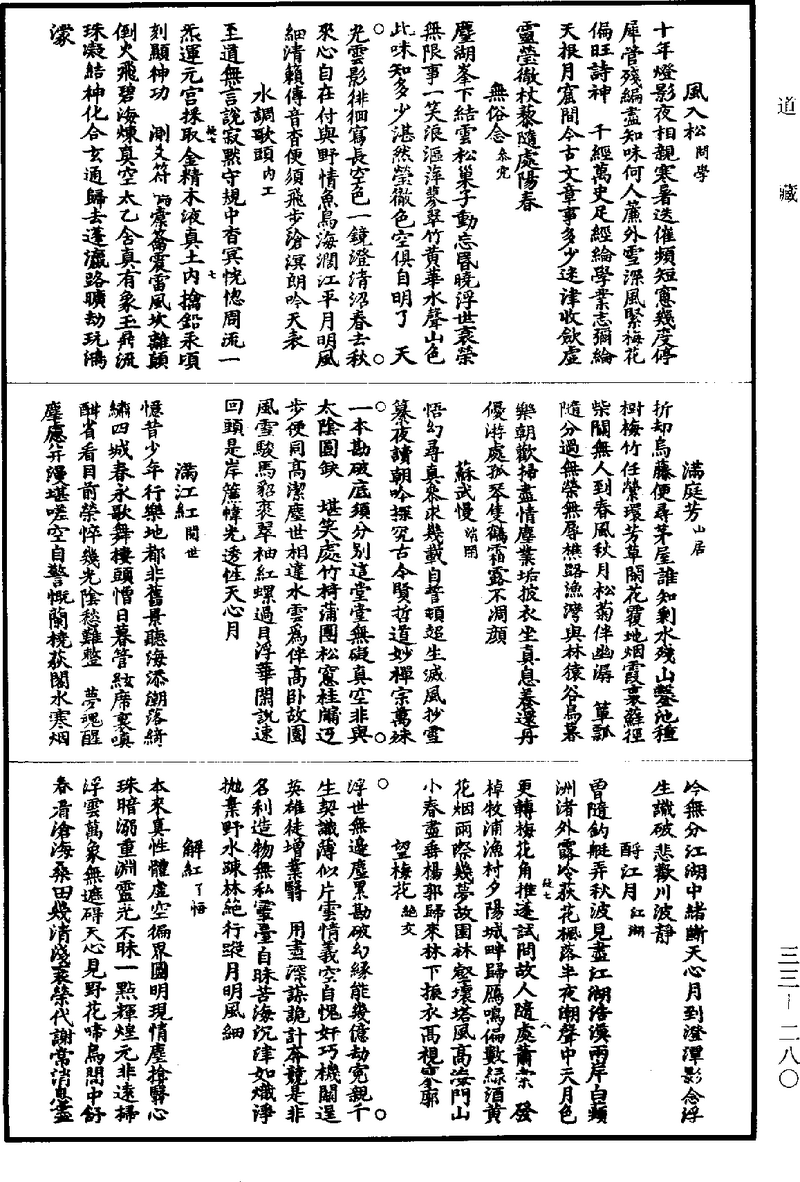 道藏
三三—二八〇
風入松 問學
十年燈影夜相親寒暑迭催頻短窻幾度停
犀管殘編盡知味何人簾外雪深風緊梅花
偏旺詩神　千經萬史足經綸學業志彌綸
天根月窟間今古文章事多少迷津收歛虛
靈瑩徹杖藜隨處陽春
無俗念 恭究
塵湖峯下結雲松巢子動忘昬曉浮世衰榮
無限事一笑浪漚萍蓼翠竹黄華水聲山色
此味知多少湛然瑩徹色空俱自明了　天
光雲影徘徊寫長空色一鏡澄清沼春去秋
來心自在付與野情魚鳥海濶江平月明風
細清籟傳音杳便須飛步滄溟朗吟天表
水調歌頭 内工
至道無言說寂黙守規中杳冥恍惚周流一
炁運元宫採取金精木液真土内擒鉛汞頃
刻顯神功　測爻符　震雷風坎離顛
倒火飛碧海煉真空太乙含真有象玉鼎流
珠凝結神化合玄通歸去蓬瀛路曠劫玩鴻
濛
滿庭芳 山居
折却烏藤便尋茅屋誰知剩水殘山鑿池種
樹梅竹任縈環芳草閑花覆地烟霞裏蘚徑
柴關無人到春風秋月松菊伴幽潺　簞瓢
隨分過無榮無辱樵路漁灣與林猿谷鳥暮
樂朝歡掃盡情塵業垢披衣坐真息養還丹
優游處孤琴隻鶴霜露不凋顔
蘇武慢
悟幻尋真恭求幾載自誓頓超生滅風抄雪
纂夜讀朝吟探究古今賢哲道妙禪宗萬殊
一本勘破底須分别這堂堂無礙真空非與
太陰圓缺　堪笑處竹椅蒲團松窻桂牖迈
步便同高潔塵世相違水雲爲伴高卧故園
風雪駿馬貂裘翠袖紅螺過目浮華閑說速
回頭是岸簾幃光透性天心月
滿江紅 閱世
憶昔少年行樂地都非舊景聽海添潮落綺
繡四城春永歌舞樓頭憎日暮管絃席裏嗔
酣省看目前榮悴幾光陰愁難整　夢魂醒
塵應笄漫堪嗟空自警慨蘭橈荻閣水寒烟
冷無分江湖中緒斷天心月到澄潭影念浮
生識破悲歡川波靜
酹江月 江湖
曽隨釣艇弄秋波見盡江湖浩漢兩岸白蘋
洲渚外露冷荻花楓落半夜潮聲中天月色
更轉梅花角推蓬試問故人隨處蕭索　發
棹牧浦漁村夕陽城畔歸鴈鳴偏數緑酒黄
花烟雨際幾夢故園林壑壞塔風高海門山
小春盡垂楊郭歸來林下振衣高視寥廓
望梅花 絶交
浮世無邊塵累勘破幻緣能幾億劫寃親千
生契識薄似片雲情義空自愧奸巧機關逞
英雄徒增業翳　用盡深謀詭計奔競是非
名利造物無私靈臺自昧苦海沉津如熾浄
抛棄野水疎林絶行蹤月明風細
解紅 了悟
本來真性體虛空徧界圓明現情塵搶翳心
珠暗溺重淵靈光不昧一點輝煌元非遠掃
浮雲萬象無遮碍天心見野花啼鳥間中舒
卷看滄海桑田幾清淺衰榮代謝常消息盡